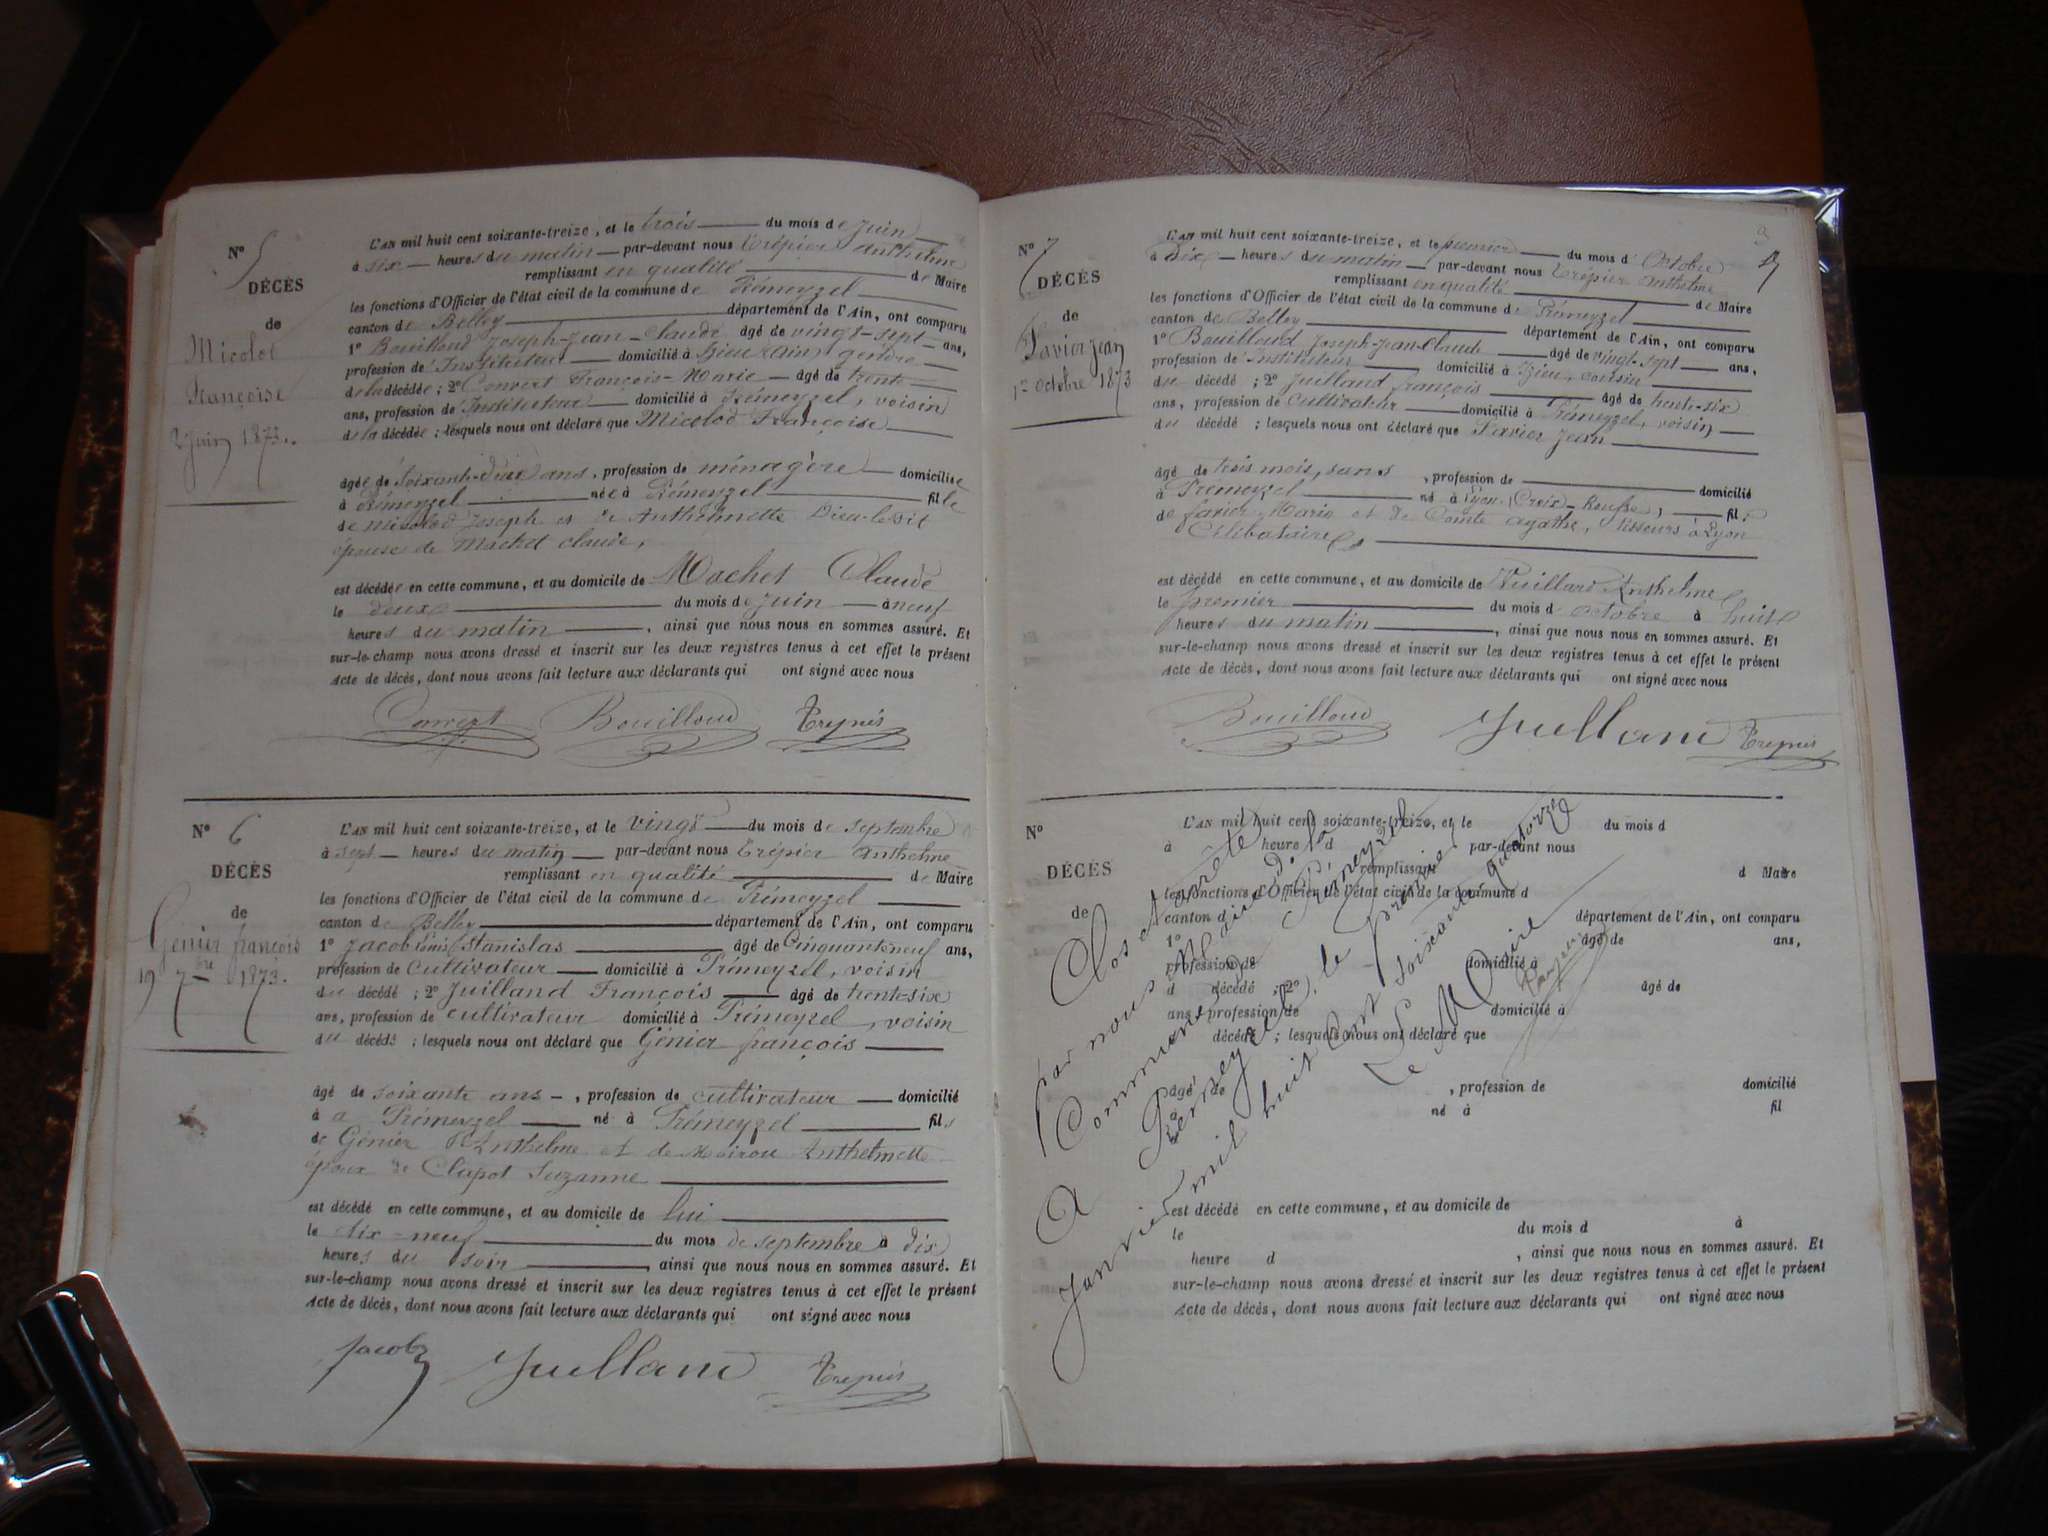 N° 5
DÉCÈS
de
Micolod
Françoise
2 juin 1873.
L'AN mil huit cent soixante-treize, et le trois du mois de juin
à six heures du matin par-devant nous Trépier Anthelme
remplissant en qualité de Maire
les fonctions d'Officier de l'état civil de la commune de Prémeyzel
canton de Belley département de l'Ain, ont comparu
1° Bouilloud Joseph-Jean-Claude âgé de vingt-sept ans,
profession de Instituteur domicilié à gendre
de la décédée ; 2° Convert François-Marie âgé de trente
ans, profession de Instituteur domicilié à Prémeyzel, voisin
de la décédée ; lesquels nous ont déclaré que Micolod Françoise
âgée de soixante-deux ans, profession de ménagère domiciliée
à Prémeyzel née à Prémeyzel fille
de Micolod Joseph et de Anthelmette Dieu-le-fit
épouse de Machet Claude,
est décédée en cette commune, et au domicile de Machet Claude
le deux du mois de juin à neuf
heures du matin, ainsi que nous nous en sommes assuré. Et
sur-le-champ nous avons dressé et inscrit sur les deux registres tenus à cet effet le présent
Acte de décès, dont nous avons fait lecture aux déclarants qui ont signé avec nous
Convert Bouilloud Trépier
N° 6
DÉCÈS
de
Génier françois
19 7bre 1873.
L'AN mil huit cent soixante-treize, et le vingt du mois de septembre
à sept heures du matin par-devant nous Trépier Anthelme
remplissant en qualité de Maire
les fonctions d'Officier de l'état civil de la commune de Prémeyzel
canton de Belley département de l'Ain, ont comparu
1° Jacob Louis Stanislas âgé de Cinquante-neuf ans,
profession de cultivateur domicilié à Prémeyzel, voisin
du décédé ; 2° Juilland François âgé de trente-six
ans, profession de cultivateur domicilié à Prémeyzel, voisin
du décédé ; lesquels nous ont déclaré que Génier françois
âgé de soixante ans, profession de cultivateur domicilié
à a Prémeyzel né à Prémeyzel fils
de Génier Anthelme et de Anthelmette
époux de Clapot Suzanne
est décédé en cette commune, et au domicile de lui
le dix-neuf du mois de septembre à dix
heures du soir, ainsi que nous nous en sommes assuré. Et
sur-le-champ nous avons dressé et inscrit sur les deux registres tenus à cet effet le présent
Acte de décès, dont nous avons fait lecture aux déclarants qui ont signé avec nous
Jacob Juilland Trépier
9
N° 7
DÉCÈS
de
Favier Jean
1er octobre 1873
L'AN mil huit cent soixante-treize, et le premier du mois d'Octobre
à dix heures du matin par-devant nous Trépier Anthelme
remplissant en qualité de Maire
les fonctions d'Officier de l'état civil de la commune de Prémeyzel
canton de Belley département de l'Ain, ont comparu
1° Bouilloud Joseph-Jean-Claude âgé de vingt-sept ans,
profession de Instituteur domicilié à cousin
du décédé ; 2° Juilland françois âgé de trente-six
ans, profession de Cultivateur domicilié à Prémeyzel, voisin
du décédé ; lesquels nous ont déclaré que Favier Jean
âgé de trois mois, sans, profession de domicilié
à Prémeyzel né à Lyon (Croix-Rousse), fils
de favier Marie et de Comte Agathe, tisseurs à Lyon
Célibataire,
est décédé en cette commune, et au domicile de Anthelme
le premier du mois d'octobre à huit
heures du matin, ainsi que nous nous en sommes assuré. Et
sur-le-champ nous avons dressé et inscrit sur les deux registres tenus à cet effet le présent
Acte de décès, dont nous avons fait lecture aux déclarants qui ont signé avec nous
Bouilloud Juilland Trépier
N°
DÉCÈS
de
L'AN mil huit cent soixante-treize, et le du mois d
à heure d par-devant nous
remplissant d Maire
les fonctions d'Officier de l'état civil de la commune d
canton d département de l'Ain, ont comparu
1° âgé de ans,
profession de domicilié à
d décédé ; 2° âgé de
ans, profession de domicilié à
d décédé ; lesquels nous ont déclaré que
âgé de , profession de domicilié
à né à fil
est décédé en cette commune, et au domicile de
le du mois d à
heure d , ainsi que nous nous en sommes assuré. Et
sur-le-champ nous avons dressé et inscrit sur les deux registres tenus à cet effet le présent
Acte de décès, dont nous avons fait lecture aux déclarants qui ont signé avec nous
Clos et arrêté
par nous Maire de la
Commune de Prémeyzel
A Prémeyzel, le premier
Janvier mil huit cent soixante quatorze
Le Maire
Trépier